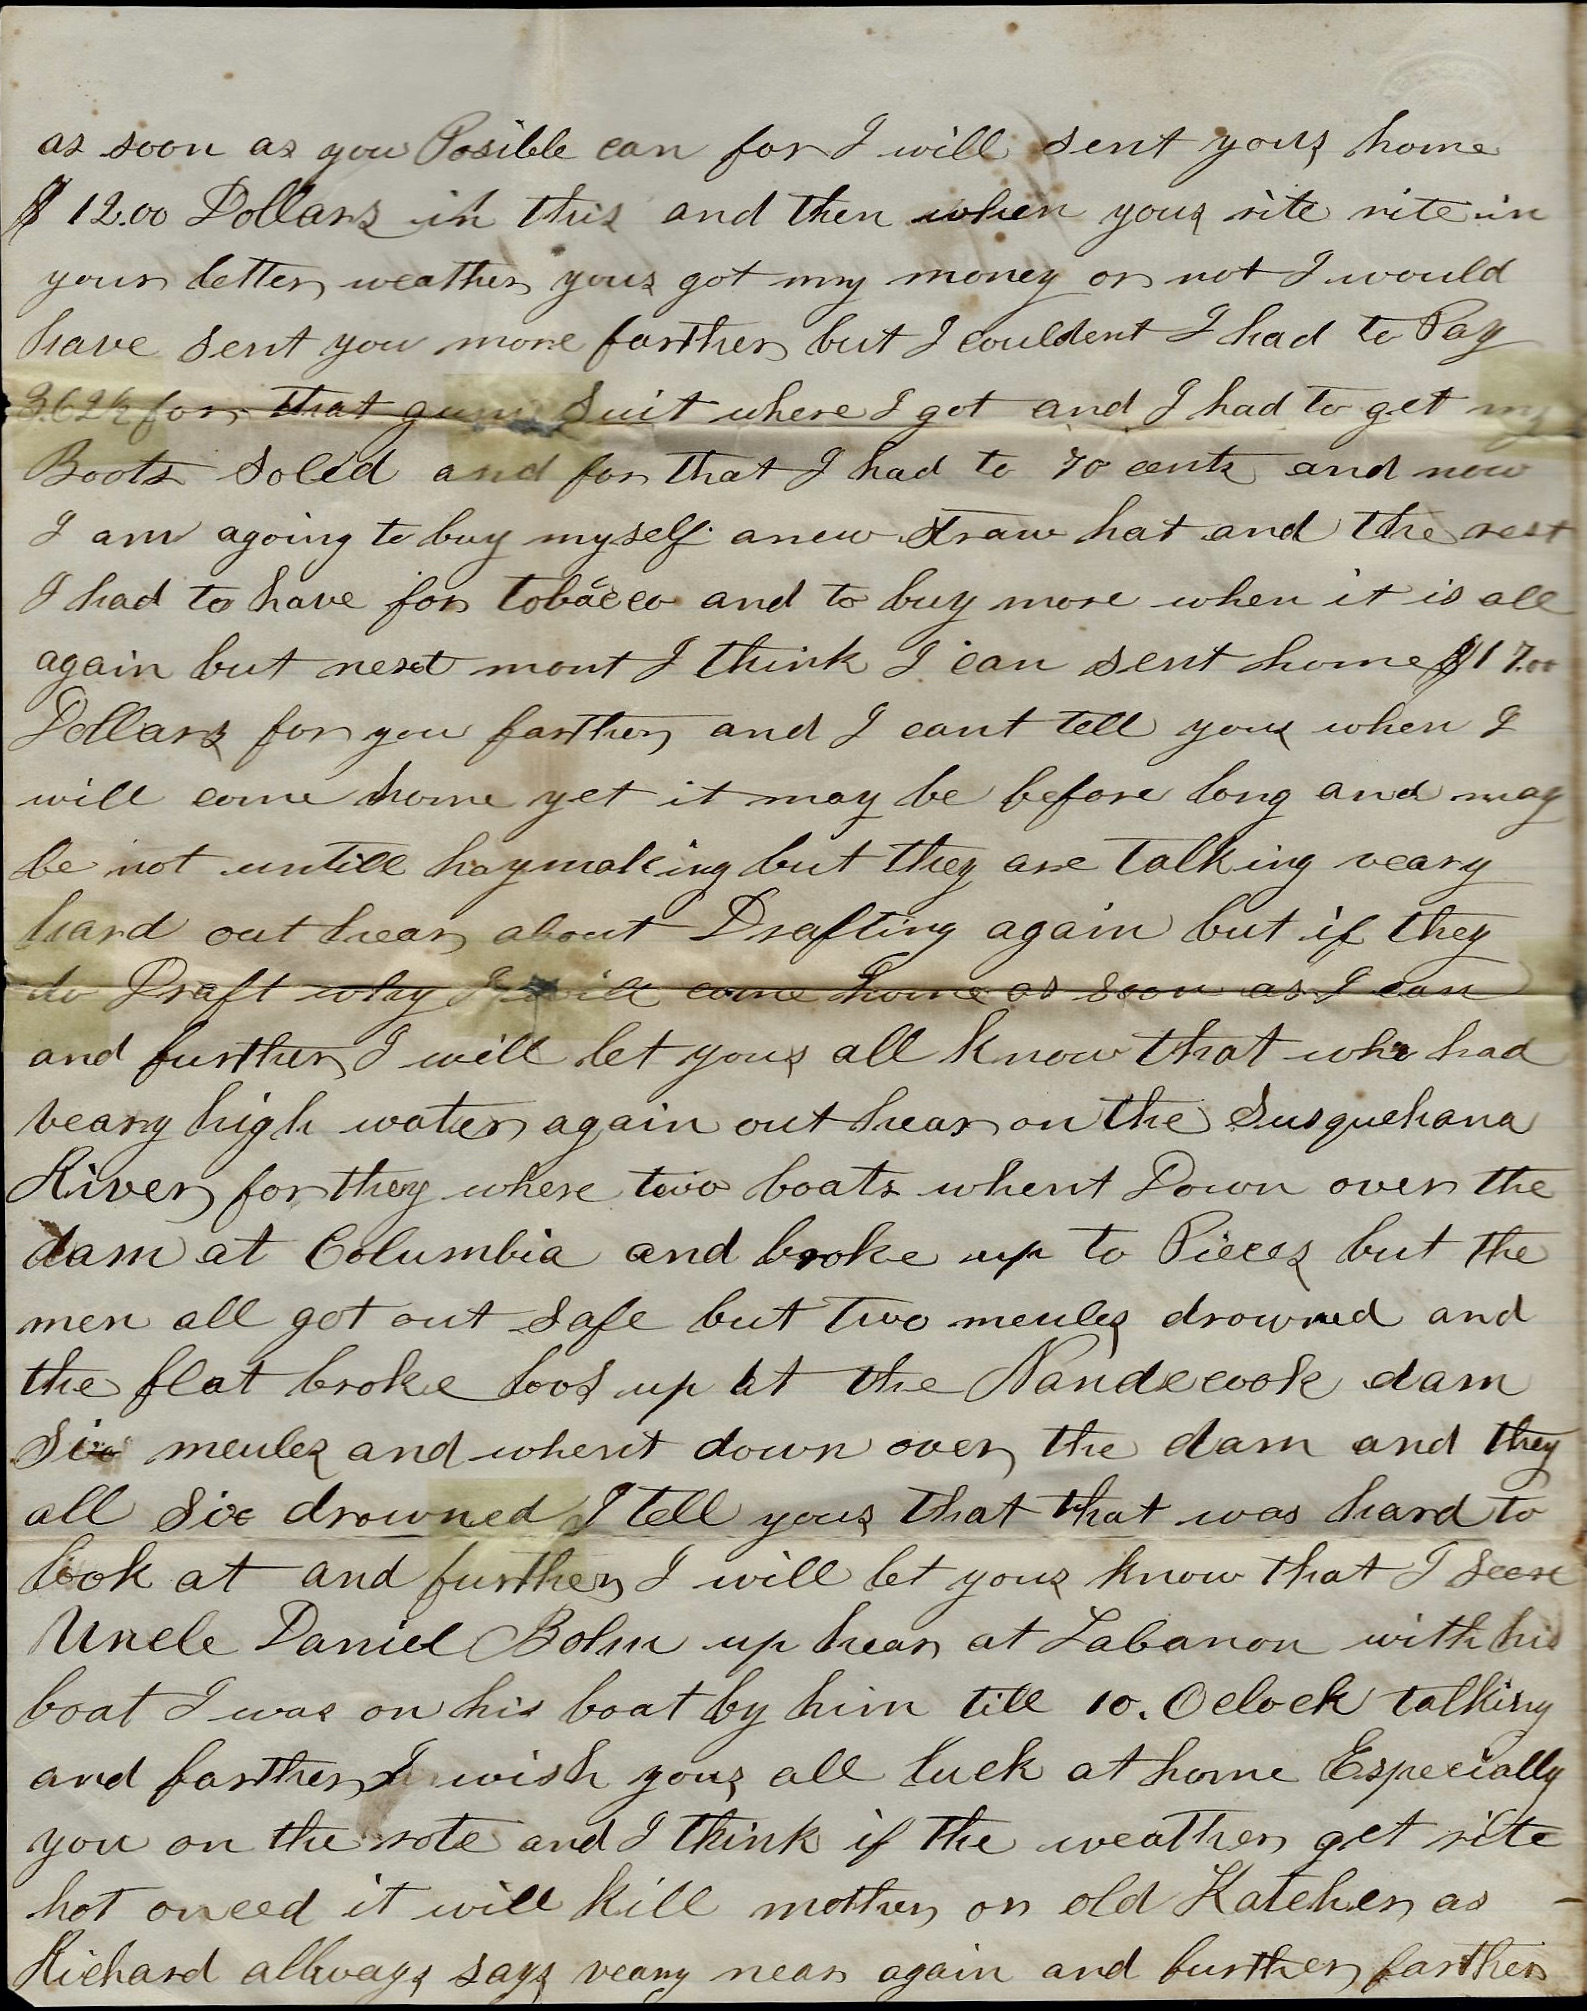 as soon as you Posible can for I will sent yous home
$12.00 Dollars in this and then when yous rite rite in
your letter weather yous got my money or not I would
have sent you more farther but I couldent I had to Pay
3.62½ for that gum Suit where I got and I had to get my
Boots Soled and for that I had to 70 cents and now
I am agoing to buy myself anew Straw hat and the rest
I had to have for tobacco and to buy more when it is all
again but next mont I think I can sent home $17.00
Dollars for you farther and I cant tell yous when I
will come home yet it may be before long and may
be not untill haymaking but they are talking veary
hard out hear about Drafting again but if they
do Draft why I will come home as soon as I can
and further I will let yous all know that whe had
veary high water again out hear on the Susquehana
River for they where two boats whent Down over the
dam at Columbia and broke up to Pieces but the
men all got out safe but two meules drowned and
the flat broke loos up at the Nandecook dam
Six meules and whent down over the dam and they
all Six drowned I tell yous that that was hard to
look at and further I will let yous know that I seen
Uncle Daniel Bohn up hear at Labanon with his
boat I was on his boat by him till 10. Oclock talking
and farther I wish yous all luck at home Especially
you on the rote and I think if the weather get rite
hot onced it will kill mother or old Katcher as
Richard allways says veary near again and further farther